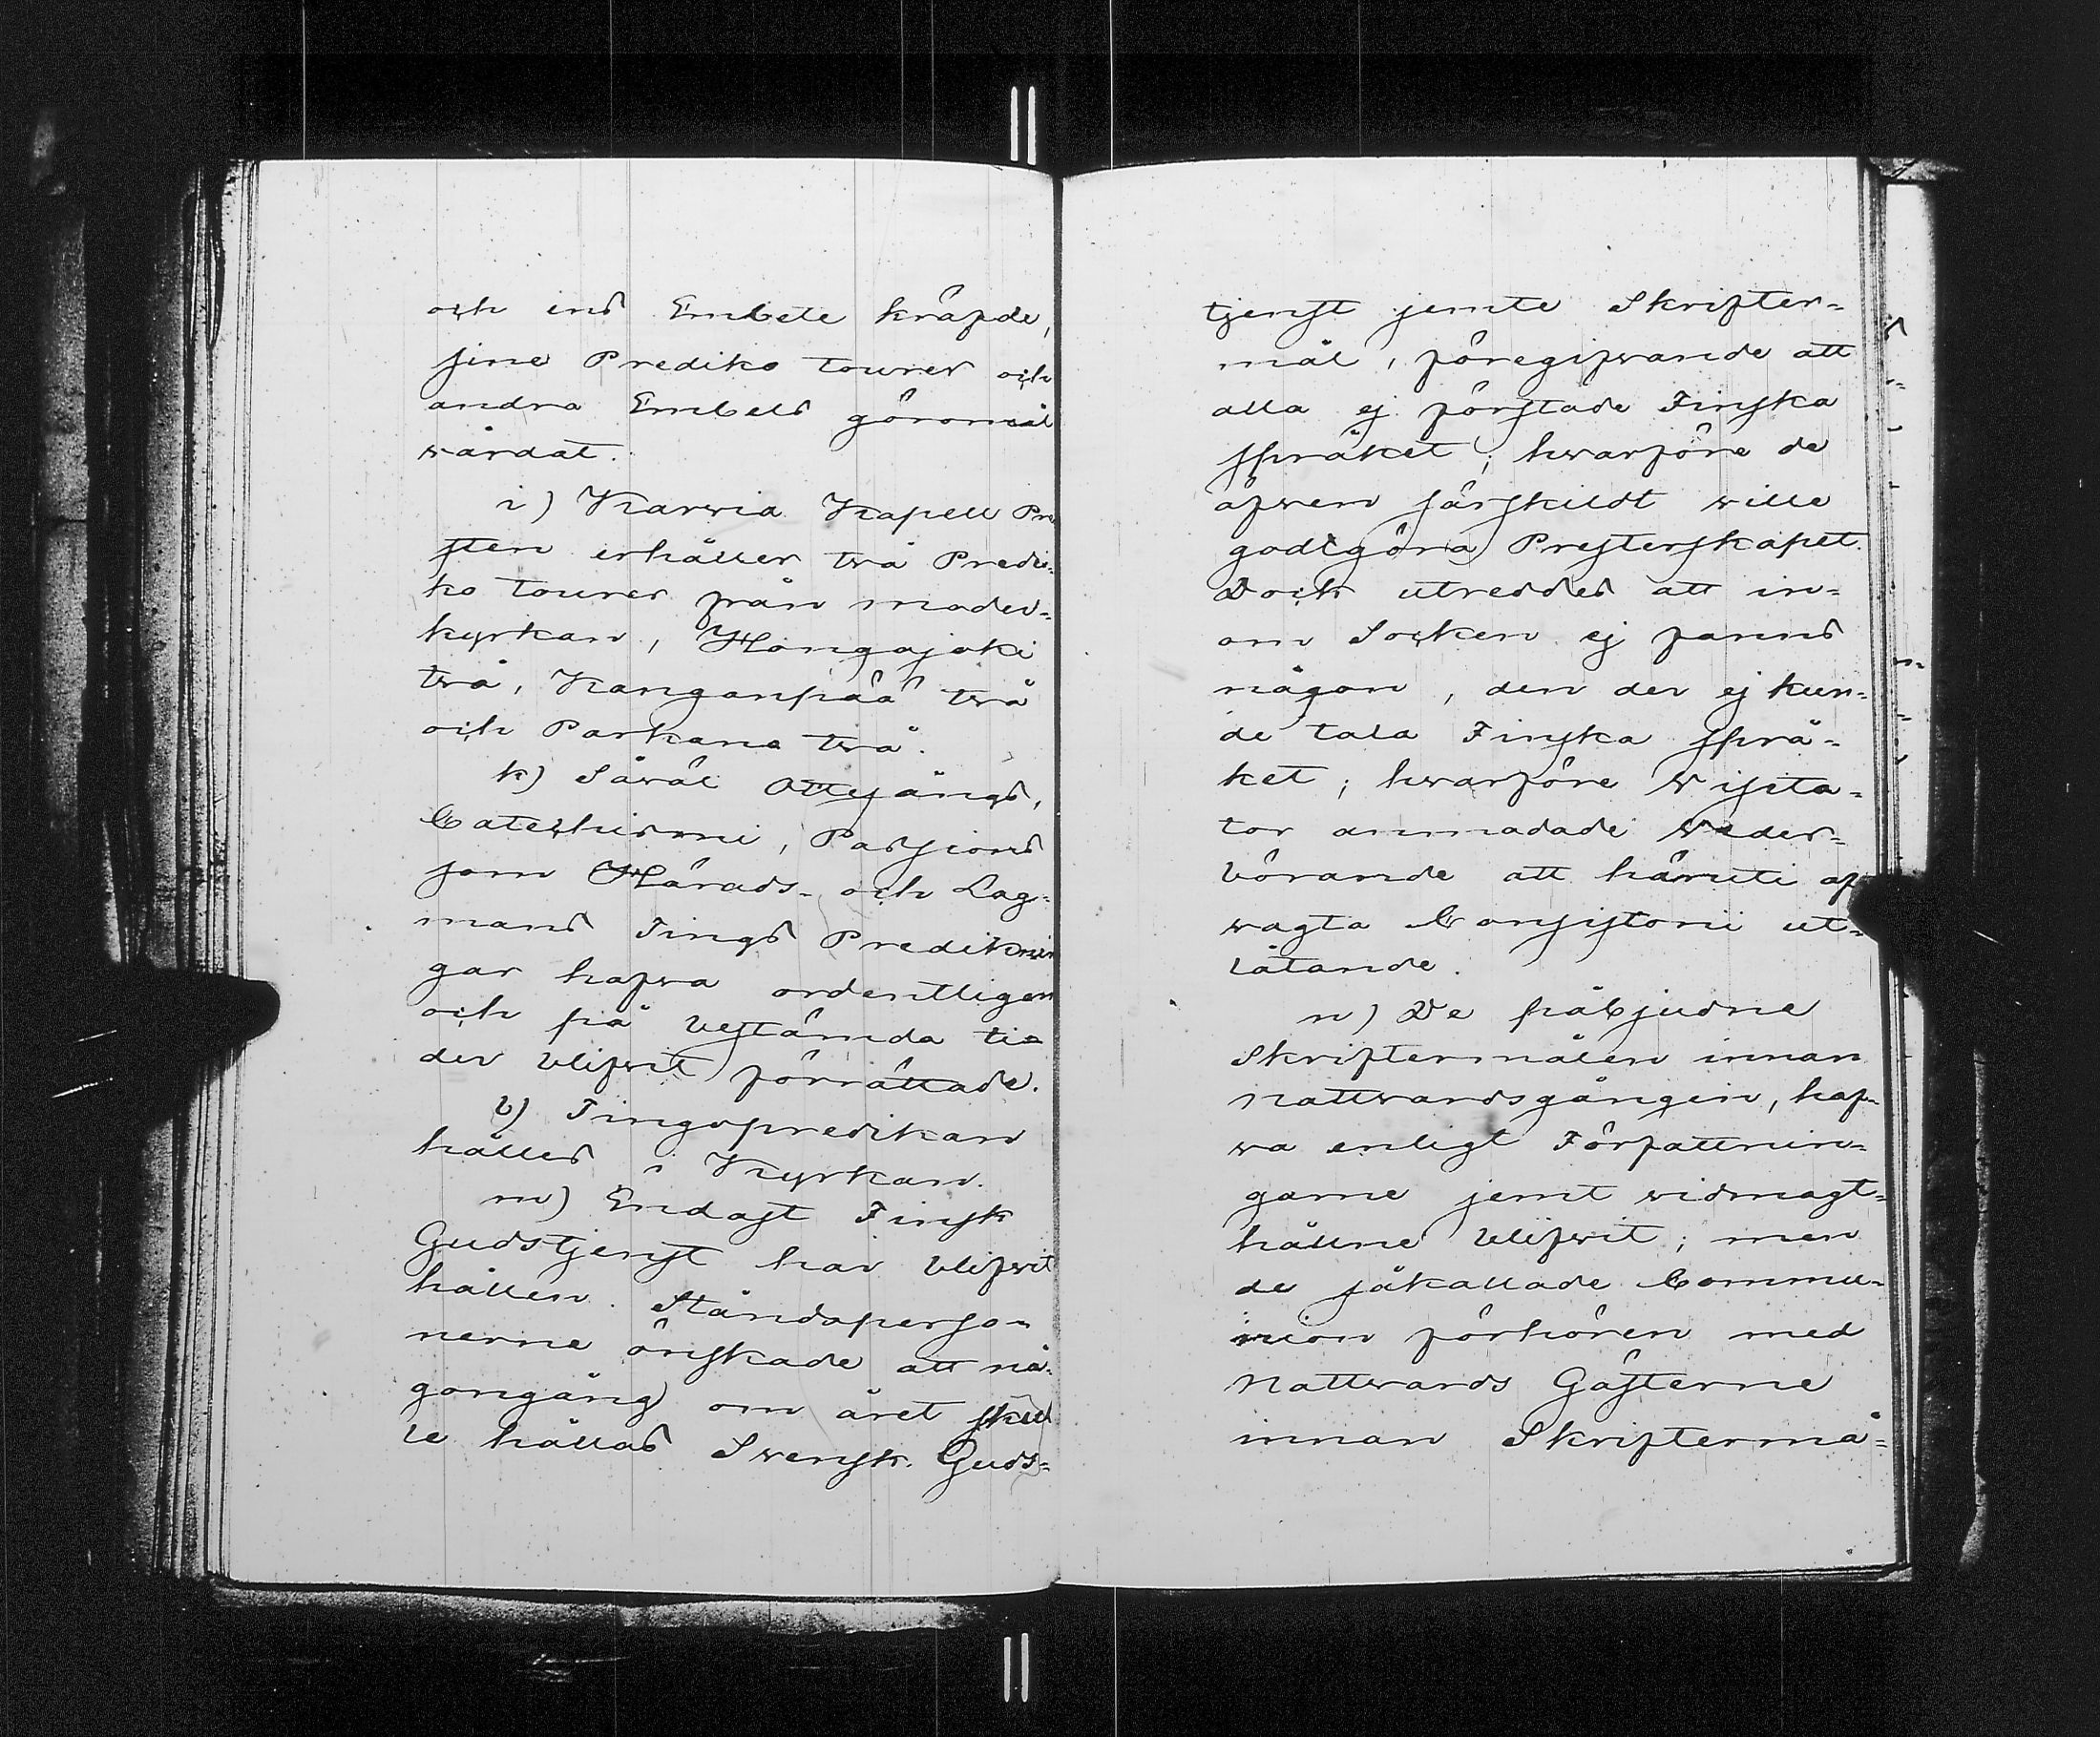 och ens Embete kräfde,
sine Prediko tourer och
andra Embets göromål
wårdat.
i) Karvia Kapell Pre
sten erhåller två Predi-
ko tourer från moder-
kyrkan, Hongojoki
två, Kangonpää två
och Parkano två.
k) Såväl Ottesångs,
Catechismi, Passions
som Härads- och Lag-
mans Tings Prediknin
gar hafva ordentligen
och på bestämda ti-
der blifvit förrättade.
l) Tingspredikan
hålles i Kyrkan.
m) Endast Finsk
Gudstjenst har blifvit
hållen. Ståndsperso-
nerne önskade att nå-
gongång om året skul
le hållas Svensk Guds-
tjenst jemte Skrifter-
mål, föregifvande att
alla ej förstade Finska
språket; hvarföre de
äfven särskildt ville
godtgöra Presterskapet.
Dock utreddes att in-
om Socken ej fanns
någon, den der ej kun-
de tala Finska språ-
ket; hvarföre Visita-
tor anmodade Veder-
börande att häruti af
vagta Consistorii ut-
låtande.
n) De påbjudne
Skriftermålen innan
Nattvardsgången, haf-
va enligt Författnin-
garne jemt vidmagt-
hållne blifvit; men
de såkallade Commu-
nion förhören med
Nattvards Gästerne
innan Skriftermå-